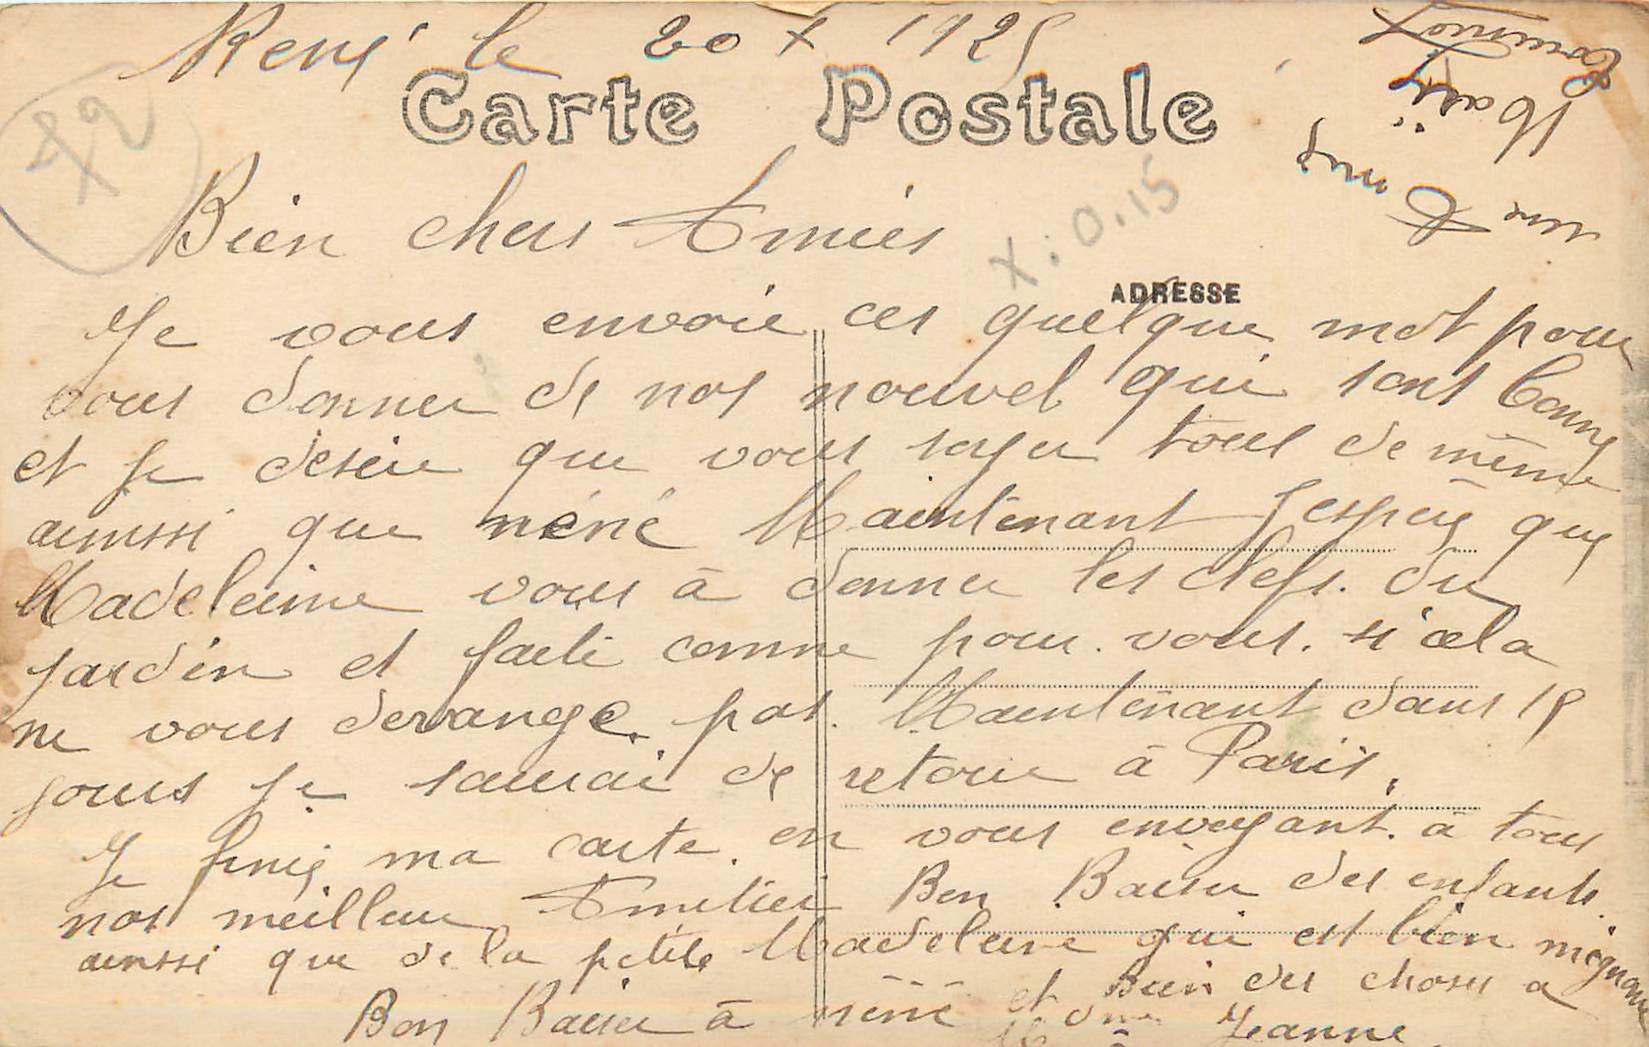 René le 20 X 1925
Carte Postale
X. 0.15
Bien chers Amiès
ADRESSE
Je vous envoie ces quelque mot pour
vous donner de nos nouvel qui sont bonne
et je desire que vous soyer tous de même
ainssi que néné Maintenant J'espère que
Madeleine vous à donner les clefs. du
jardin et faite comme pour. vous. si cela
ne vous derange pas. Maintenant dans 15
jours je saurai de retour à Paris.
Je finis ma carte. en vous envoyant. à tous
nos meilleur Amitier Bon Baiser des enfants.
ainssi que de la petite Madeleine qui est bien mignonne
Bon Baiser à néné et Bien des choses a
Jeanne.
une Amie